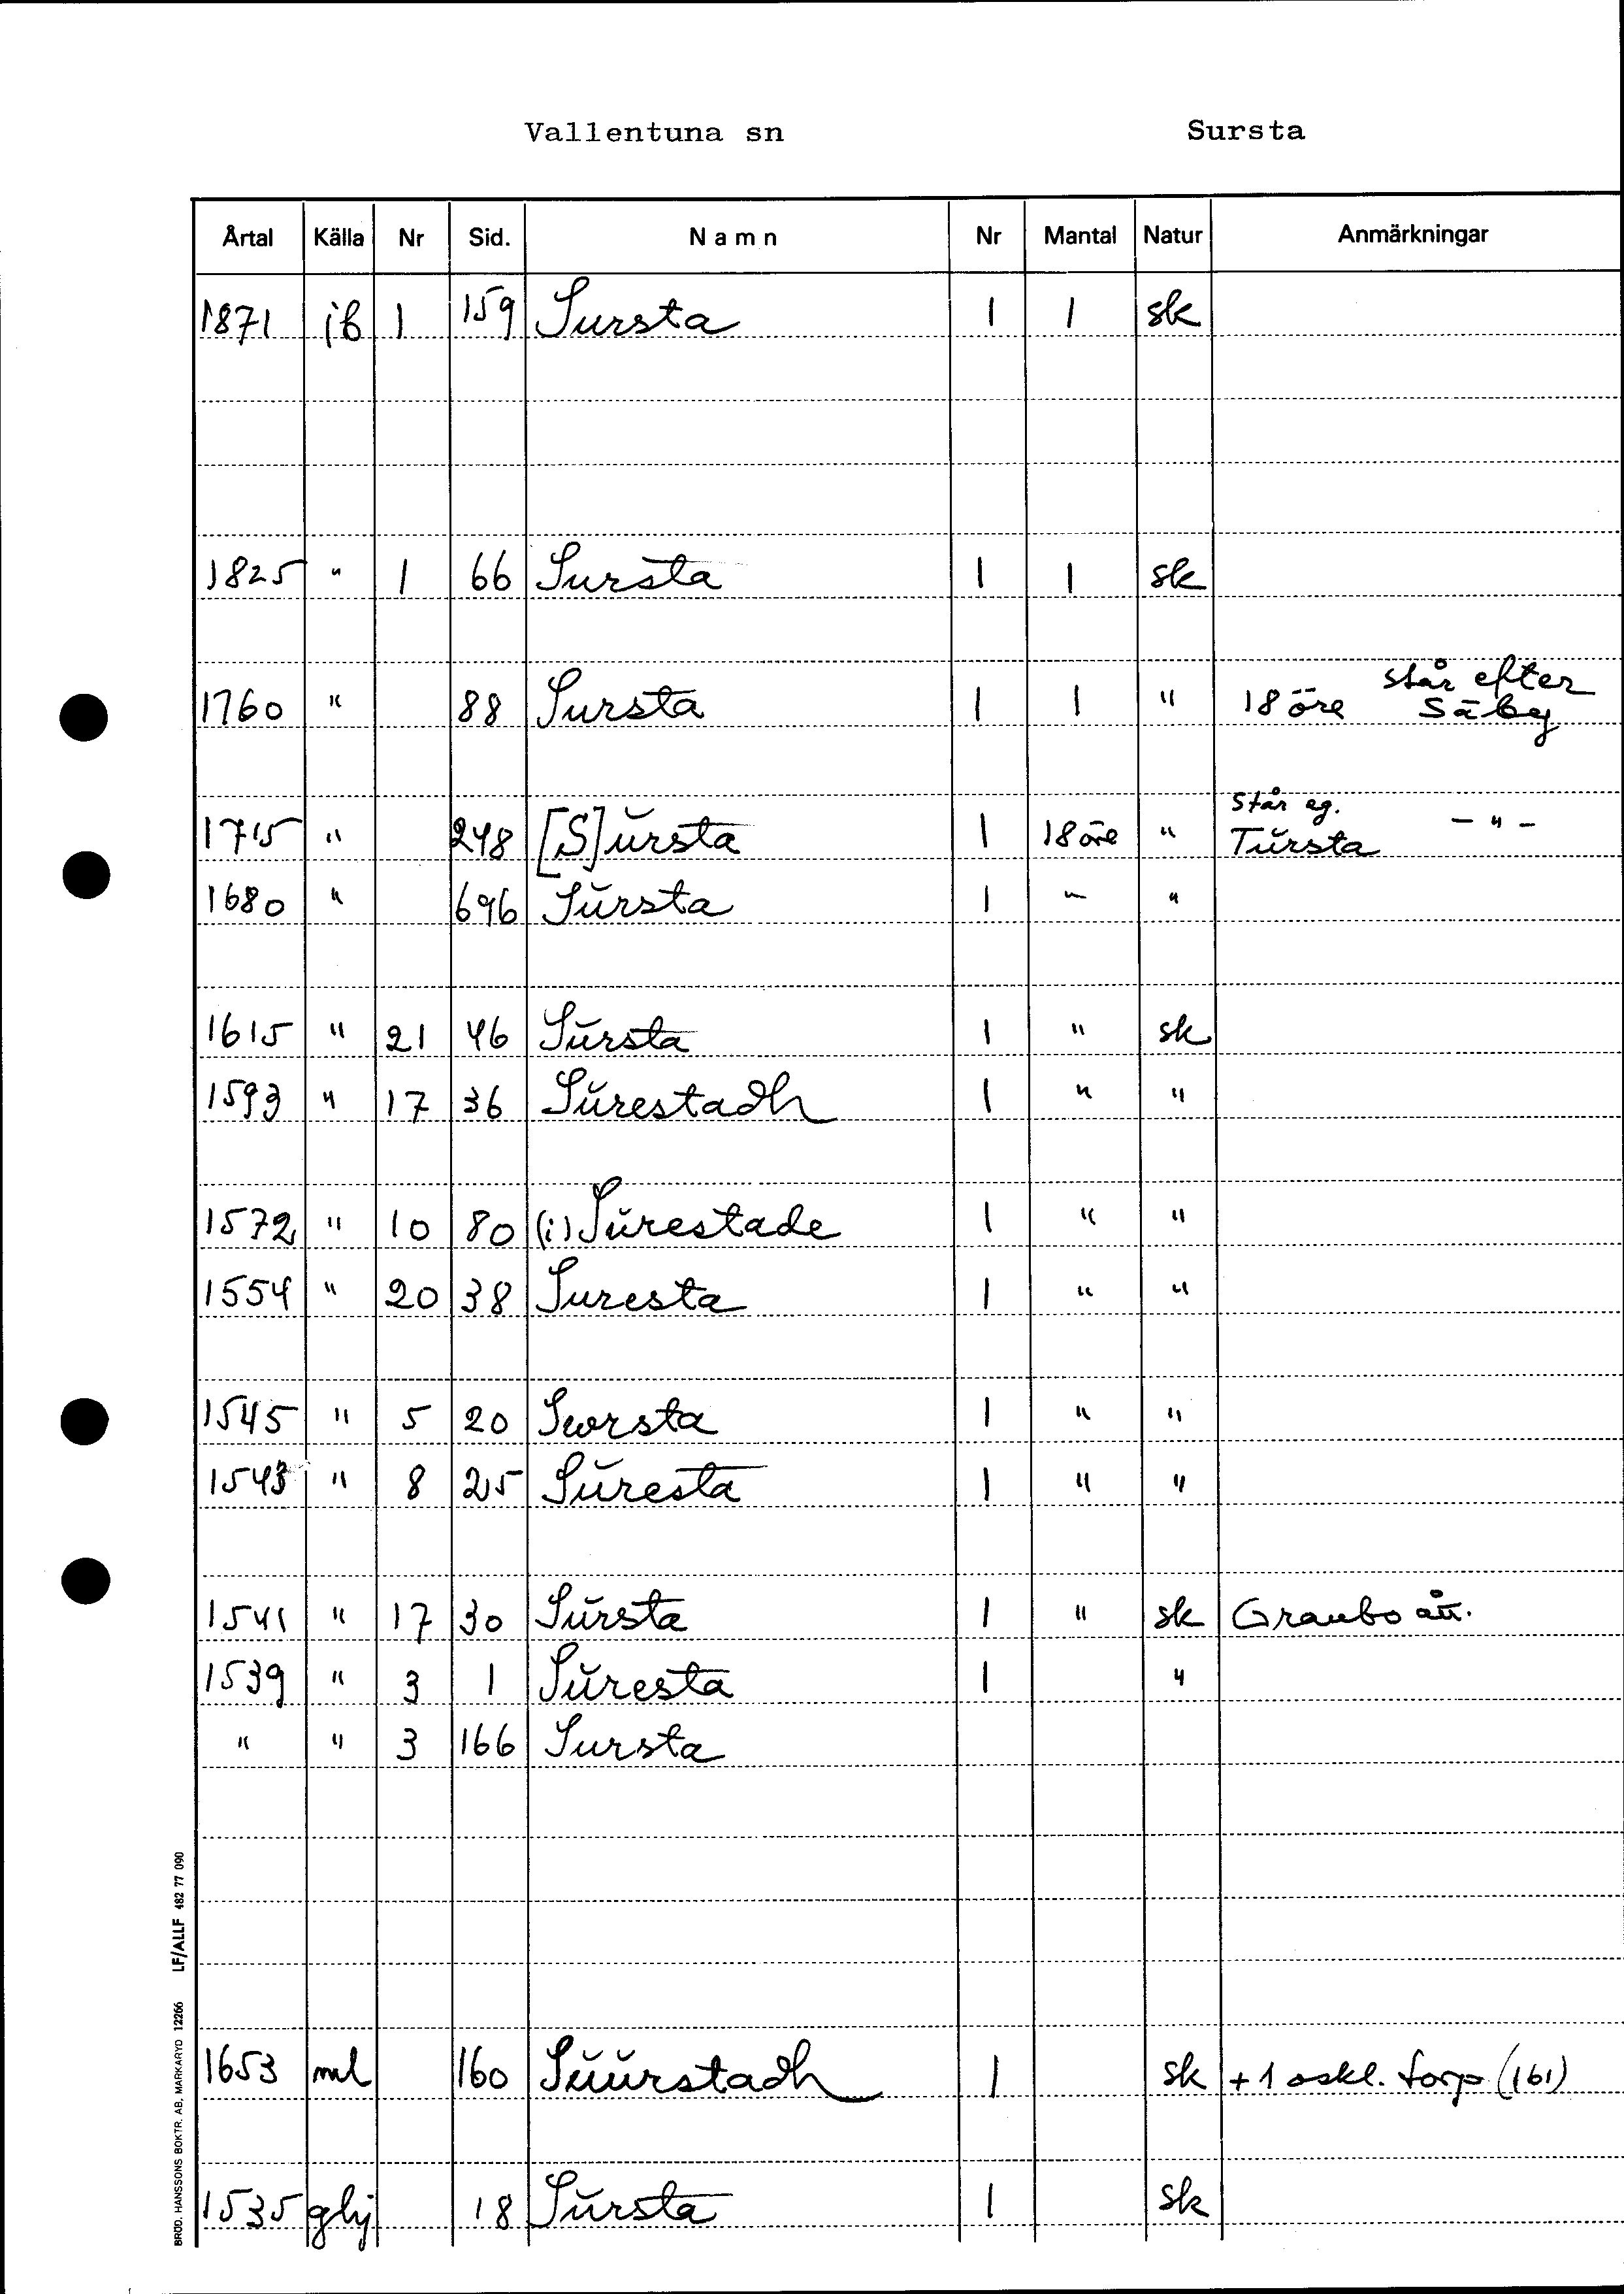 Vallentuna sn Sursta
Årtal Källa Nr Sid. Namn Nr Mantal Natur Anmärkningar
1871 jb 1 159 Sursta 1 1 sk
1825 " 1 66 Sursta 1 1 sk
1760 " 88 Sursta 1 1 " 18 öre står efter Säby
1715 " 248 [S]ŭrsta 1 18 öre " står eg. Tŭrsta – " –
1680 " 696 Sŭrsta 1 " "
1615 " 21 46 Sŭrsta 1 " sk
1593 " 17 36 Sŭrestadh 1 " "
1572 " 10 80 (i) Sŭrestade 1 " "
1554 " 20 38 Suresta 1 " "
1545 " 5 20 Sworsta 1 " "
1543 " 8 25 Sŭresta 1 " "
1541 " 17 30 Sŭrsta 1 " sk
1539 " 3 1 Sŭresta 1 "
" " 3 166 Sursta
1653 ml 160 Sŭŭrstadh 1 sk + 1 oskl. torp (161)
1535 ghj 18 Sŭrsta 1 sk
BRÖD. HANSSONS BOKTR. AB, MARKARYD 12266 LF/ALLF 482 77 090